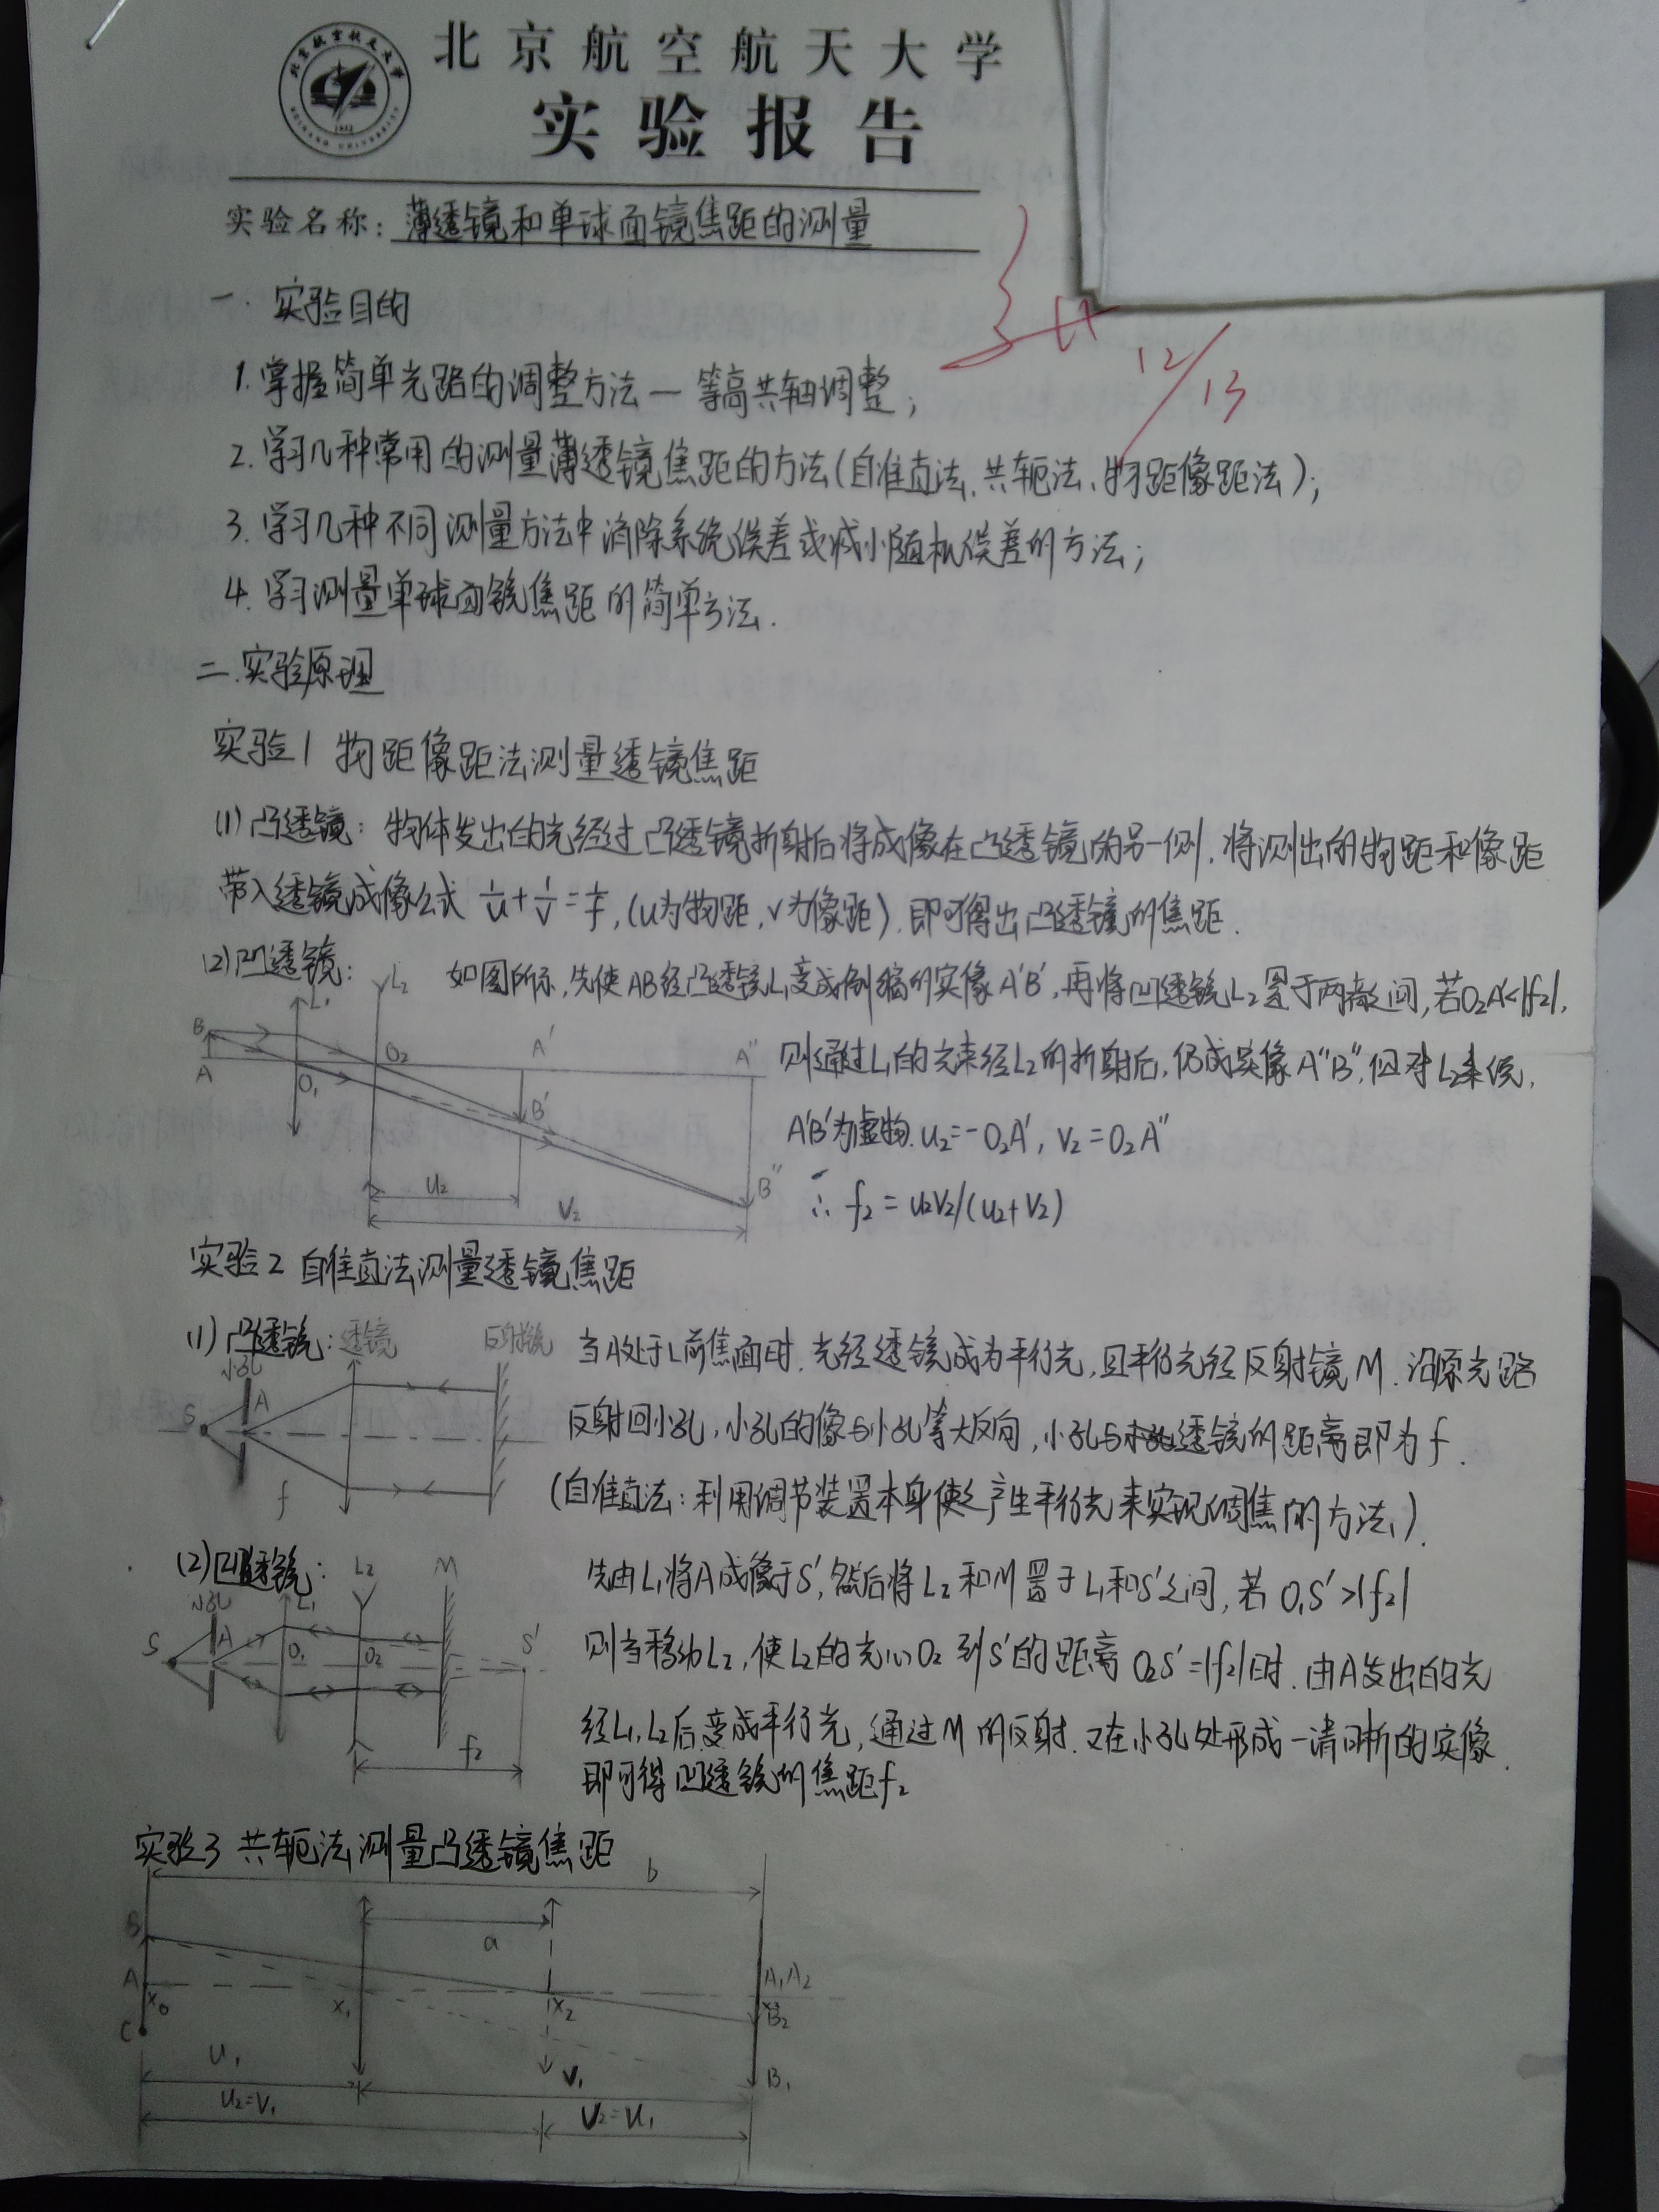 北京航空航天大学
实验报告
实验名称: 薄透镜和单球面镜焦距的测量
12/13
一. 实验目的
1. 掌握简单光路的调整方法一等高共轴调整;
2. 学习几种常用的测量薄透镜焦距的方法(自准直法、共轭法、物距像距法);
3. 学习几种不同测量方法中消除系统误差或减小随机误差的方法;
4. 学习测量单球面镜焦距的简单方法.
二. 实验原理
实验1 物距像距法测量透镜焦距
(1) 凸透镜: 物体发出的光经过凸透镜折射后将成像在凸透镜的另一侧, 将测出的物距和像距
带入透镜成像公式 1/u + 1/v = 1/f, (u为物距, v为像距). 即可得出凸透镜的焦距.
(2) 凹透镜: 如图所示, 先使AB经凸透镜L₁变成倒缩的实像A'B', 再将凹透镜L₂置于两者之间, 若O₂A'<|f₂|,
则通过L₁的光束经L₂的折射后, 仍成实像A"B", 但对L₂系统,
A'B'为虚物. u₂=-O₂A', v₂=O₂A"
∴ f₂ = u₂v₂/(u₂+v₂)
L₁ L₂
B A O₁ O₂ A' B' A" B"
u₂
v₂
实验2 自准直法测量透镜焦距
(1) 凸透镜: 透镜 反射镜
小孔
S A
f
当A处于L前焦面时. 光经透镜成为平行光, 且平行光经反射镜M. 沿原光路
反射回小孔, 小孔的像与小孔等大反向, 小孔与透镜的距离即为f.
(自准直法: 利用调节装置本身使之产生平行光来实现调焦的方法.)
(2) 凹透镜: L₂ M
小孔 L₁
S A O₁ O₂ S'
f₂
先由L₁将A成像于S', 然后将L₂和M置于L₁和S'之间, 若 O₁S'>|f₂|
则当移动L₂, 使L₂的光心O₂到S'的距离 O₂S'=|f₂|时. 由A发出的光
经L₁, L₂后变成平行光, 通过M的反射. 又在小孔处形成一清晰的实像.
即可得凹透镜的焦距f₂
实验3 共轭法测量凸透镜焦距
b
a
B
A A₁A₂
x₀ x₁ x₂
B₂
C
u₁ v₁ B₁
u₂=v₁ v₂=u₁